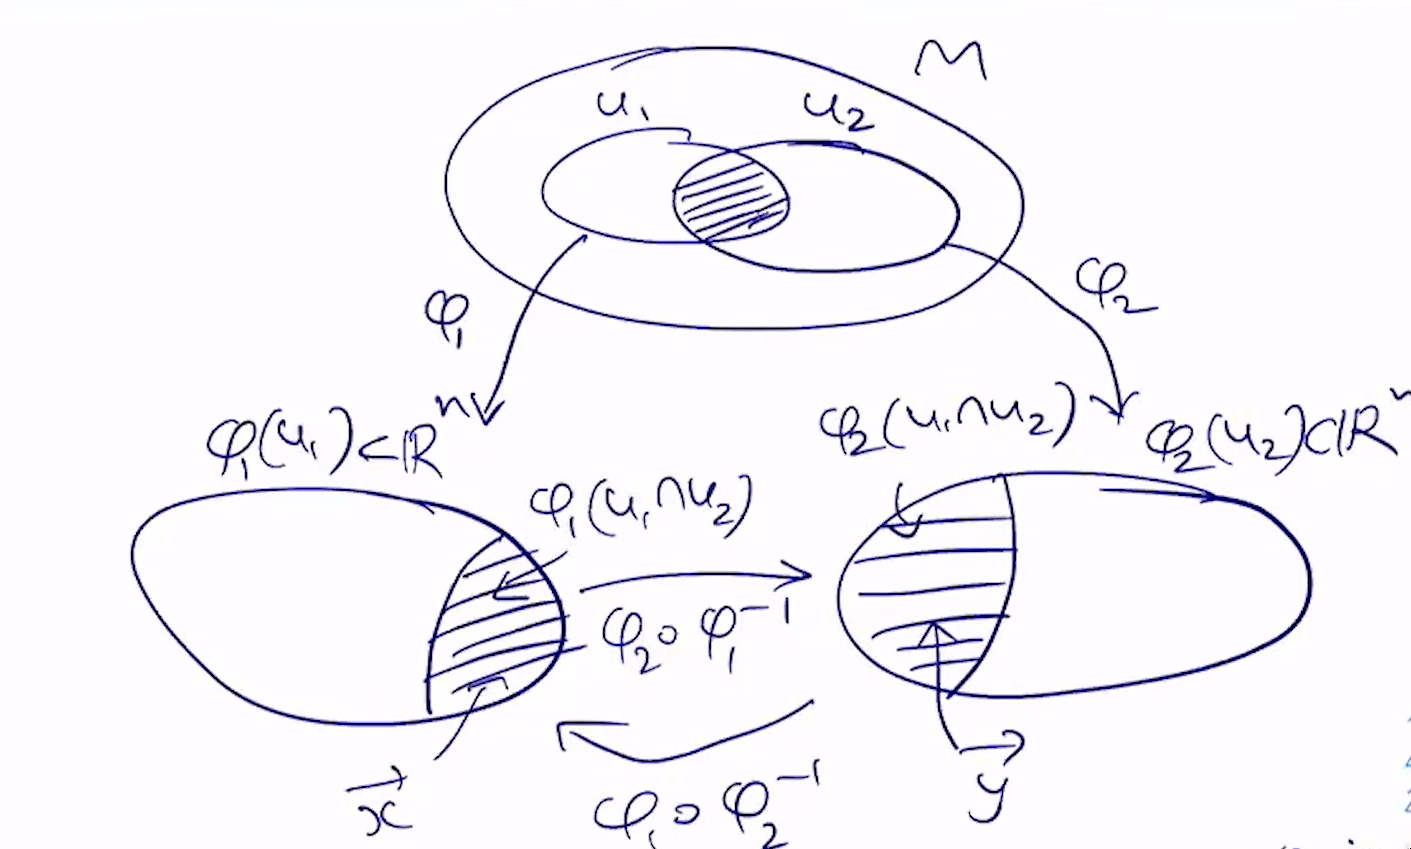 M
U₁ U₂
φ₁ φ₂
φ₁(U₁)⊂ℝⁿ φ₂(U₁∩U₂) φ₂(U₂)⊂ℝⁿ
φ₁(U₁∩U₂)
φ₂∘φ₁⁻¹
x⃗ φ₁∘φ₂⁻¹ y⃗